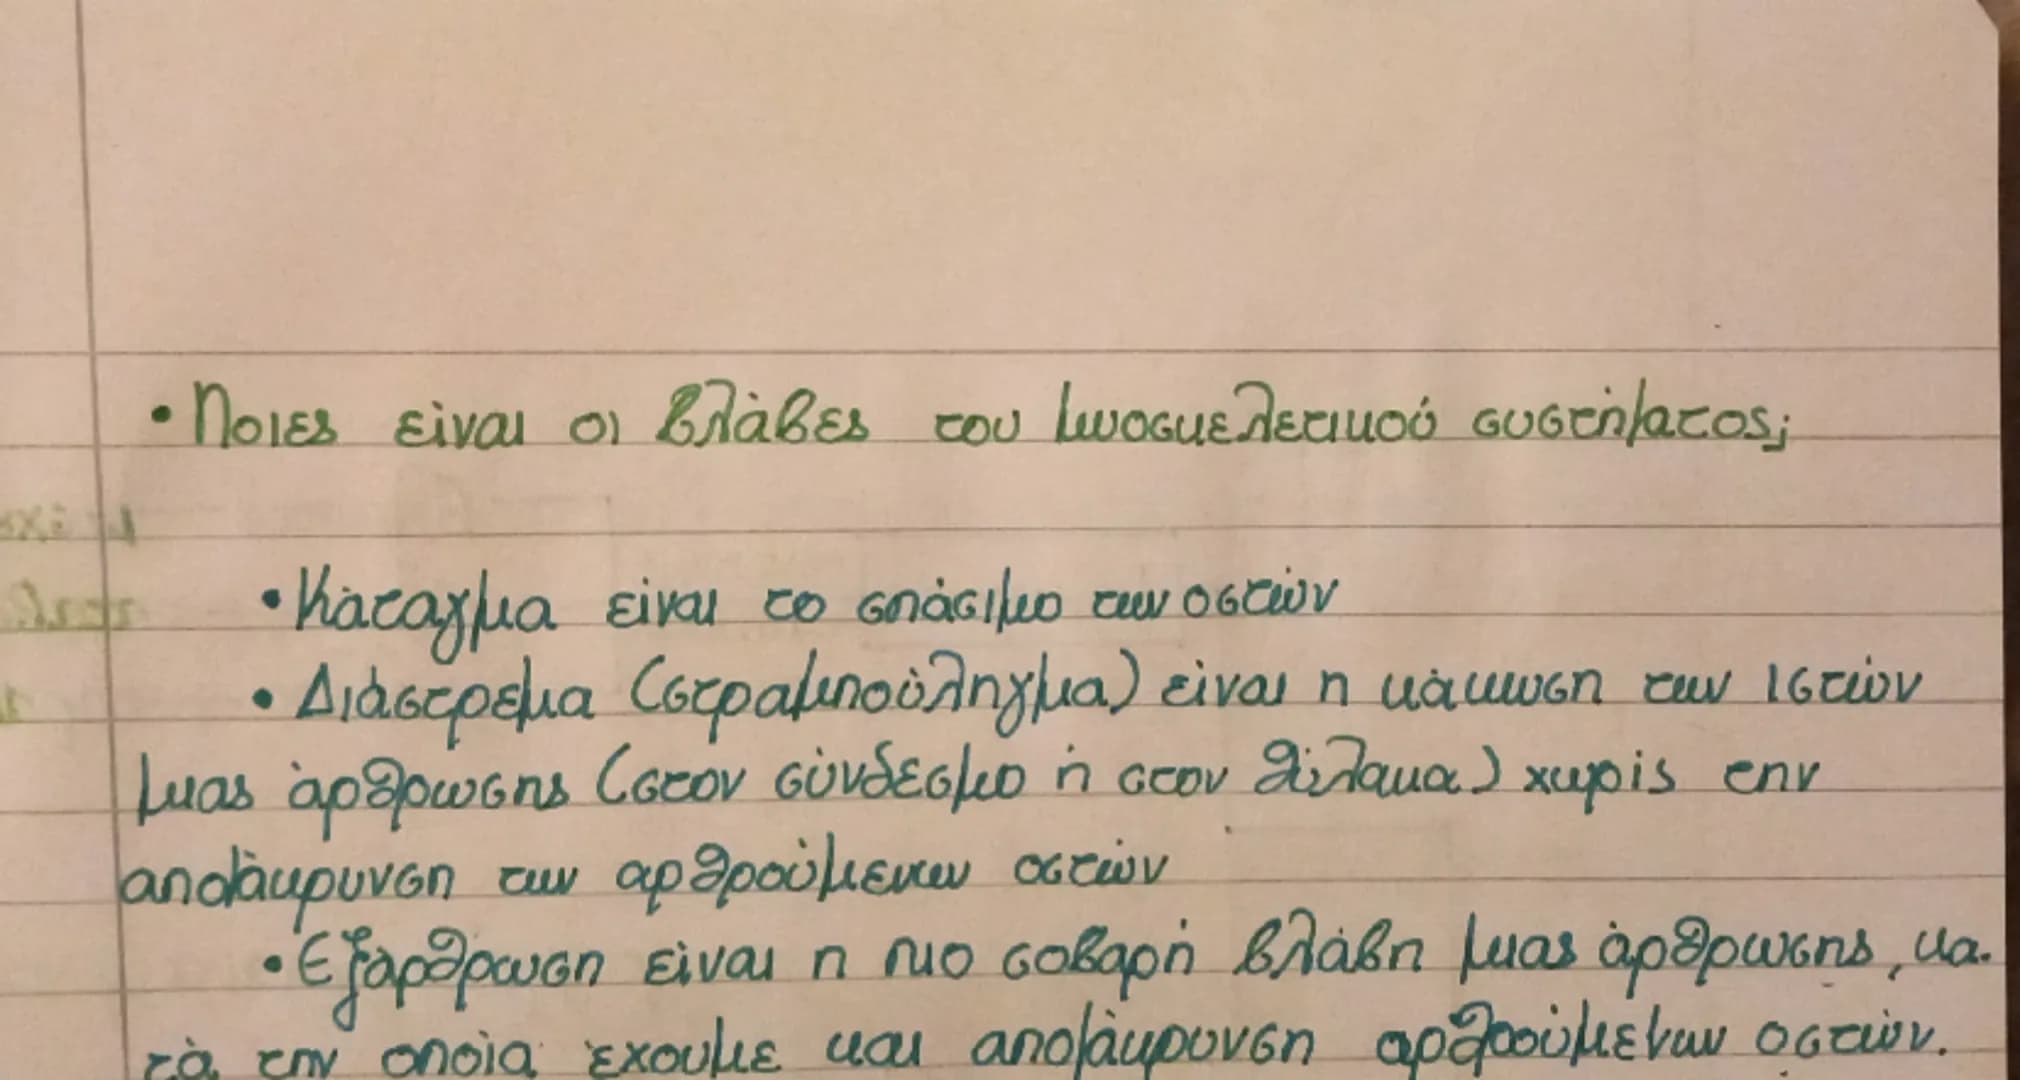 • Ποιες είναι οι βλάβες του μυοσκελετικού συστήματος;
• Κάταγμα είναι το σπάσιμο των οστών
• Διάστρεμμα (στραμπούληγμα) είναι η κάκωση των ιστών
μιας άρθρωσης (στον σύνδεσμο ή στον θύλακα) χωρίς την
απομάκρυνση των αρθρούμενων οστών
• Εξάρθρωση είναι η πιο σοβαρή βλάβη μιας άρθρωσης, κα-
τά την οποία έχουμε και απομάκρουνση αρθρούμενων οστών.